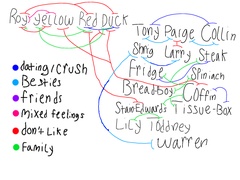 Roy yellow Red Duck
Tony Paige Collin
Shrig Larry Steak
Fridge Spinach
Breadboy Coffin
Stain Edwards Tissue-Box
Lily Toddney
Warren
dating/crush
Besties
friends
mixed feelings
don't Like
family